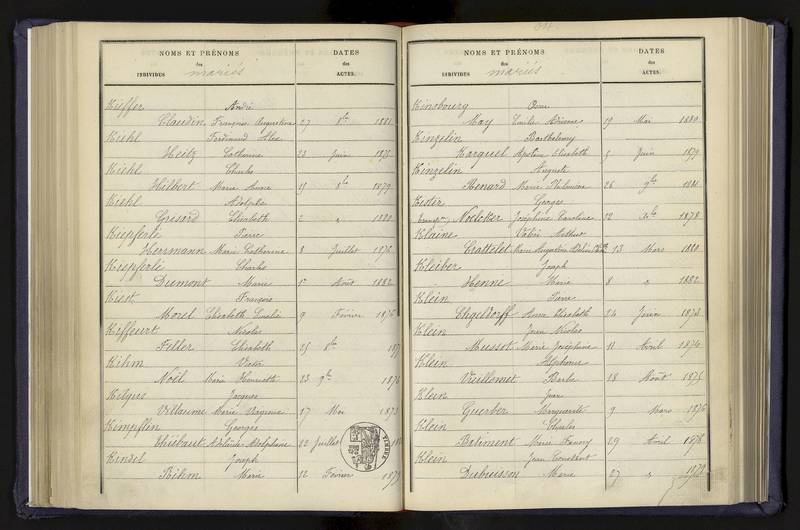 NOMS ET PRÉNOMS
DATES
des
des
INDIVIDUS mariés
ACTES.
Kieffer André
Claudin Françoise Augustine 27 8bre 1882
Kiehl Ferdinand Alex
Heitz Catherine 23 Juin 1875
Kiehl Charles
Hilbert Marie Anne 15 8bre 1879
Kiehl Adolphe
Grisard Elisabeth 2 " 1880
Kiepferlé Pierre
Herrmann Marie Catherine 8 Juillet 1876
Kiepferlé Charles
Dumont Marie 1er Août 1882
Kiest François
Morel Elisabeth 9 Février
Kiffeurt Nicolas
Feller Elisabeth 25 8bre
Kihm Victor
Noël Marie Henriette 23 9bre 1876
Kilgus Jacques
Villaume Marie Virginie 17 Mai 1873
Kimpflin Georges
Thiébaut Adelaïde Adolphine 22 Juillet
Kindel Joseph
Bihm Marie 12 Février 1879
NOMS ET PRÉNOMS
DATES
des
des
INDIVIDUS mariés
ACTES.
Kinsbourg
May Emilie 19 Mai 1880
Kinzelin Barthélemy
Karquel Elisabeth 5 Juin 1879
Kinzelin Auguste
Menard Marie 26 9bre 1881
Kister Georges
Noelcker Joséphine Caroline 12 1878
Klaine
Marie Augustine 13 Mars 1880
Kleiber Joseph
Henne Marie 8 " 1882
Klein Pierre
Anna Elisabeth 24 Juin 1873
Klein Jean Nicolas
Mussot Marie Joséphine 11 Avril 1874
Klein Alphonse
Vuillemet Barbe 18 Août 1875
Klein Jean
Guerber Marguerite 9 Mars 1876
Klein Charles
Batiment Marie Fanny 29 Avril 1878
Klein Jean Constant
Dubuisson Marie 27 "